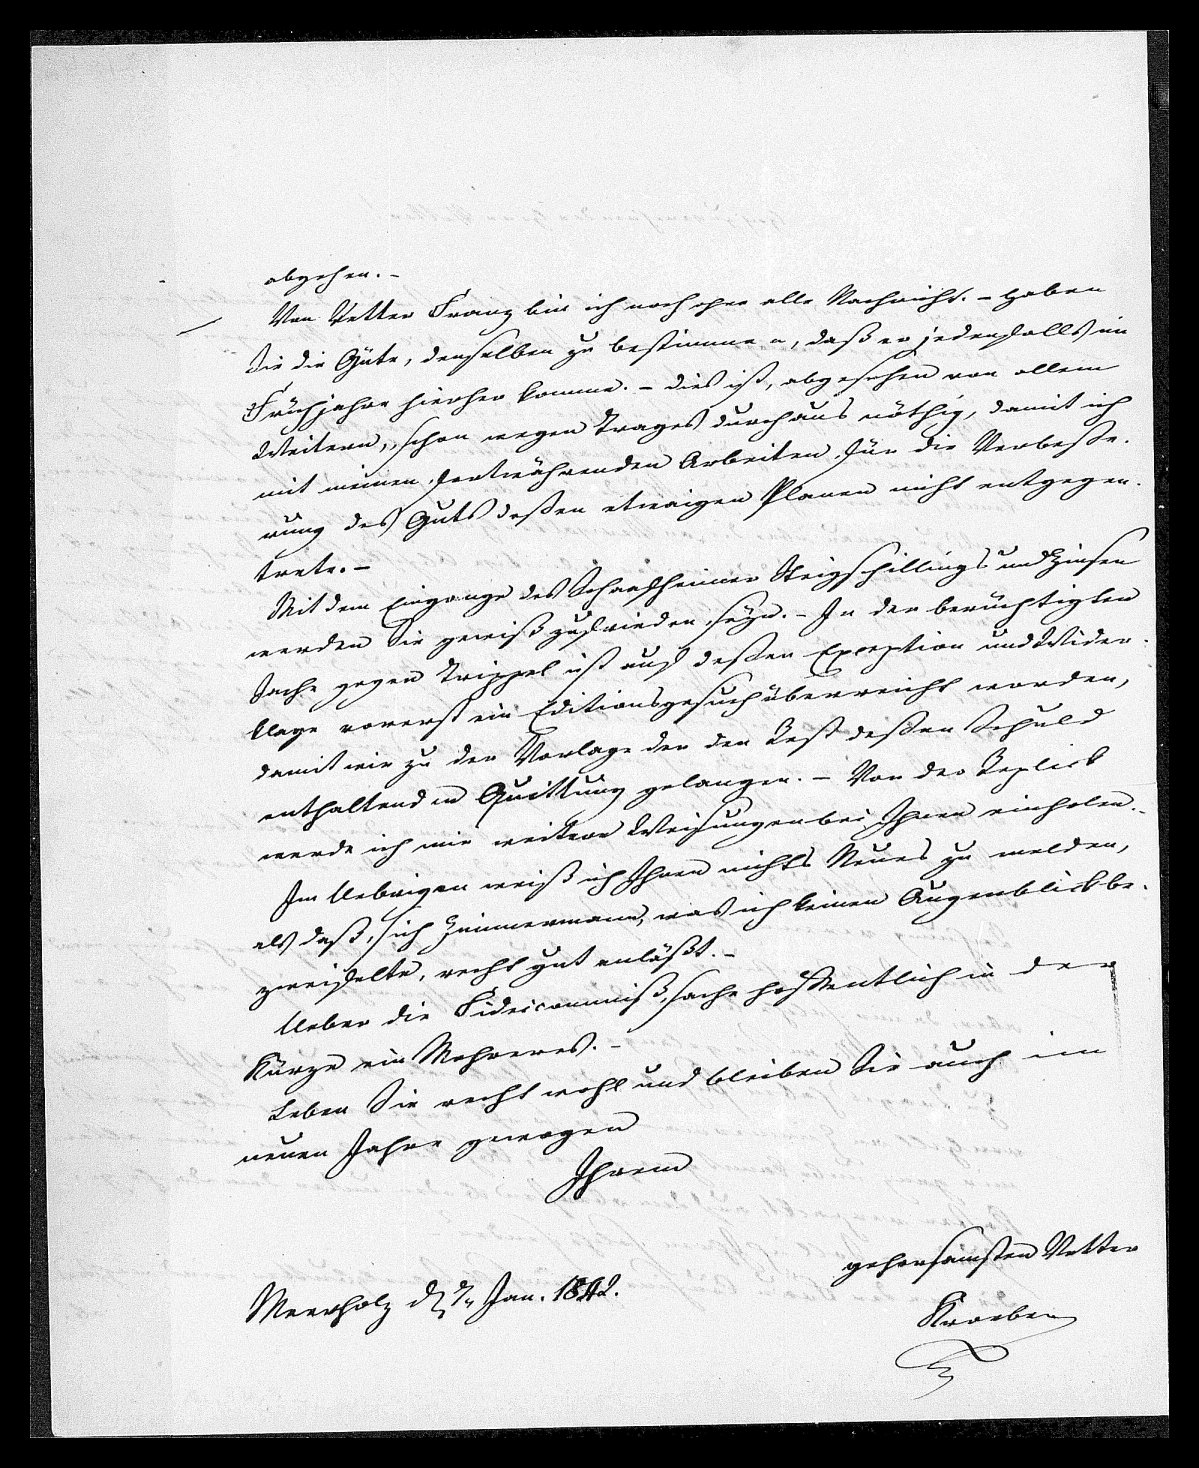 abgehen. –
Von Vetter Franz bin ich noch ohne alle Nachricht. – Haben
Sie die Güte, denselben zu bestimmen, daß er jedenfalls im
Frühjahre hierher komme. – Dies ist, abgesehen von allem
Weitern, schon wegen Trages durchaus nöthig, damit ich
mit meinen fortwährenden Arbeiten für die Verbeße-
rung des Guts deßen etwaigen Planen nicht entgegen-
trete. –
Mit dem Eingange des Schaafheimer Steigschillings und Zinsen
werden Sie gewiß zufrieden seyn. – In der berüchtigten
Sache gegen Trippel ist auf deßen Exception und Wider-
klage vorerst ein Editionsgesuch überreicht worden,
damit wir zu der Vorlage der den Rest deßen Schuld
enthaltenden Quittung gelangen. – Von der Replick
werde ich mir weitere Weisungen bei Ihnen einholen. –
Im Uebrigen weiß ich Ihnen nichts Neues zu melden,
als daß sich Zimmermann, was ich keinen Augenblick be-
zweifelte, recht gut anläßt. –
Ueber die Fideicommißsache hoffentlich in der
Kürze ein Mehreres. –
Leben Sie recht wohl und bleiben Sie auch im
neuen Jahre gewogen
Ihrem
gehorsamsten Vetter
Meerholz d 7n Jan. 1842.
Kroeber